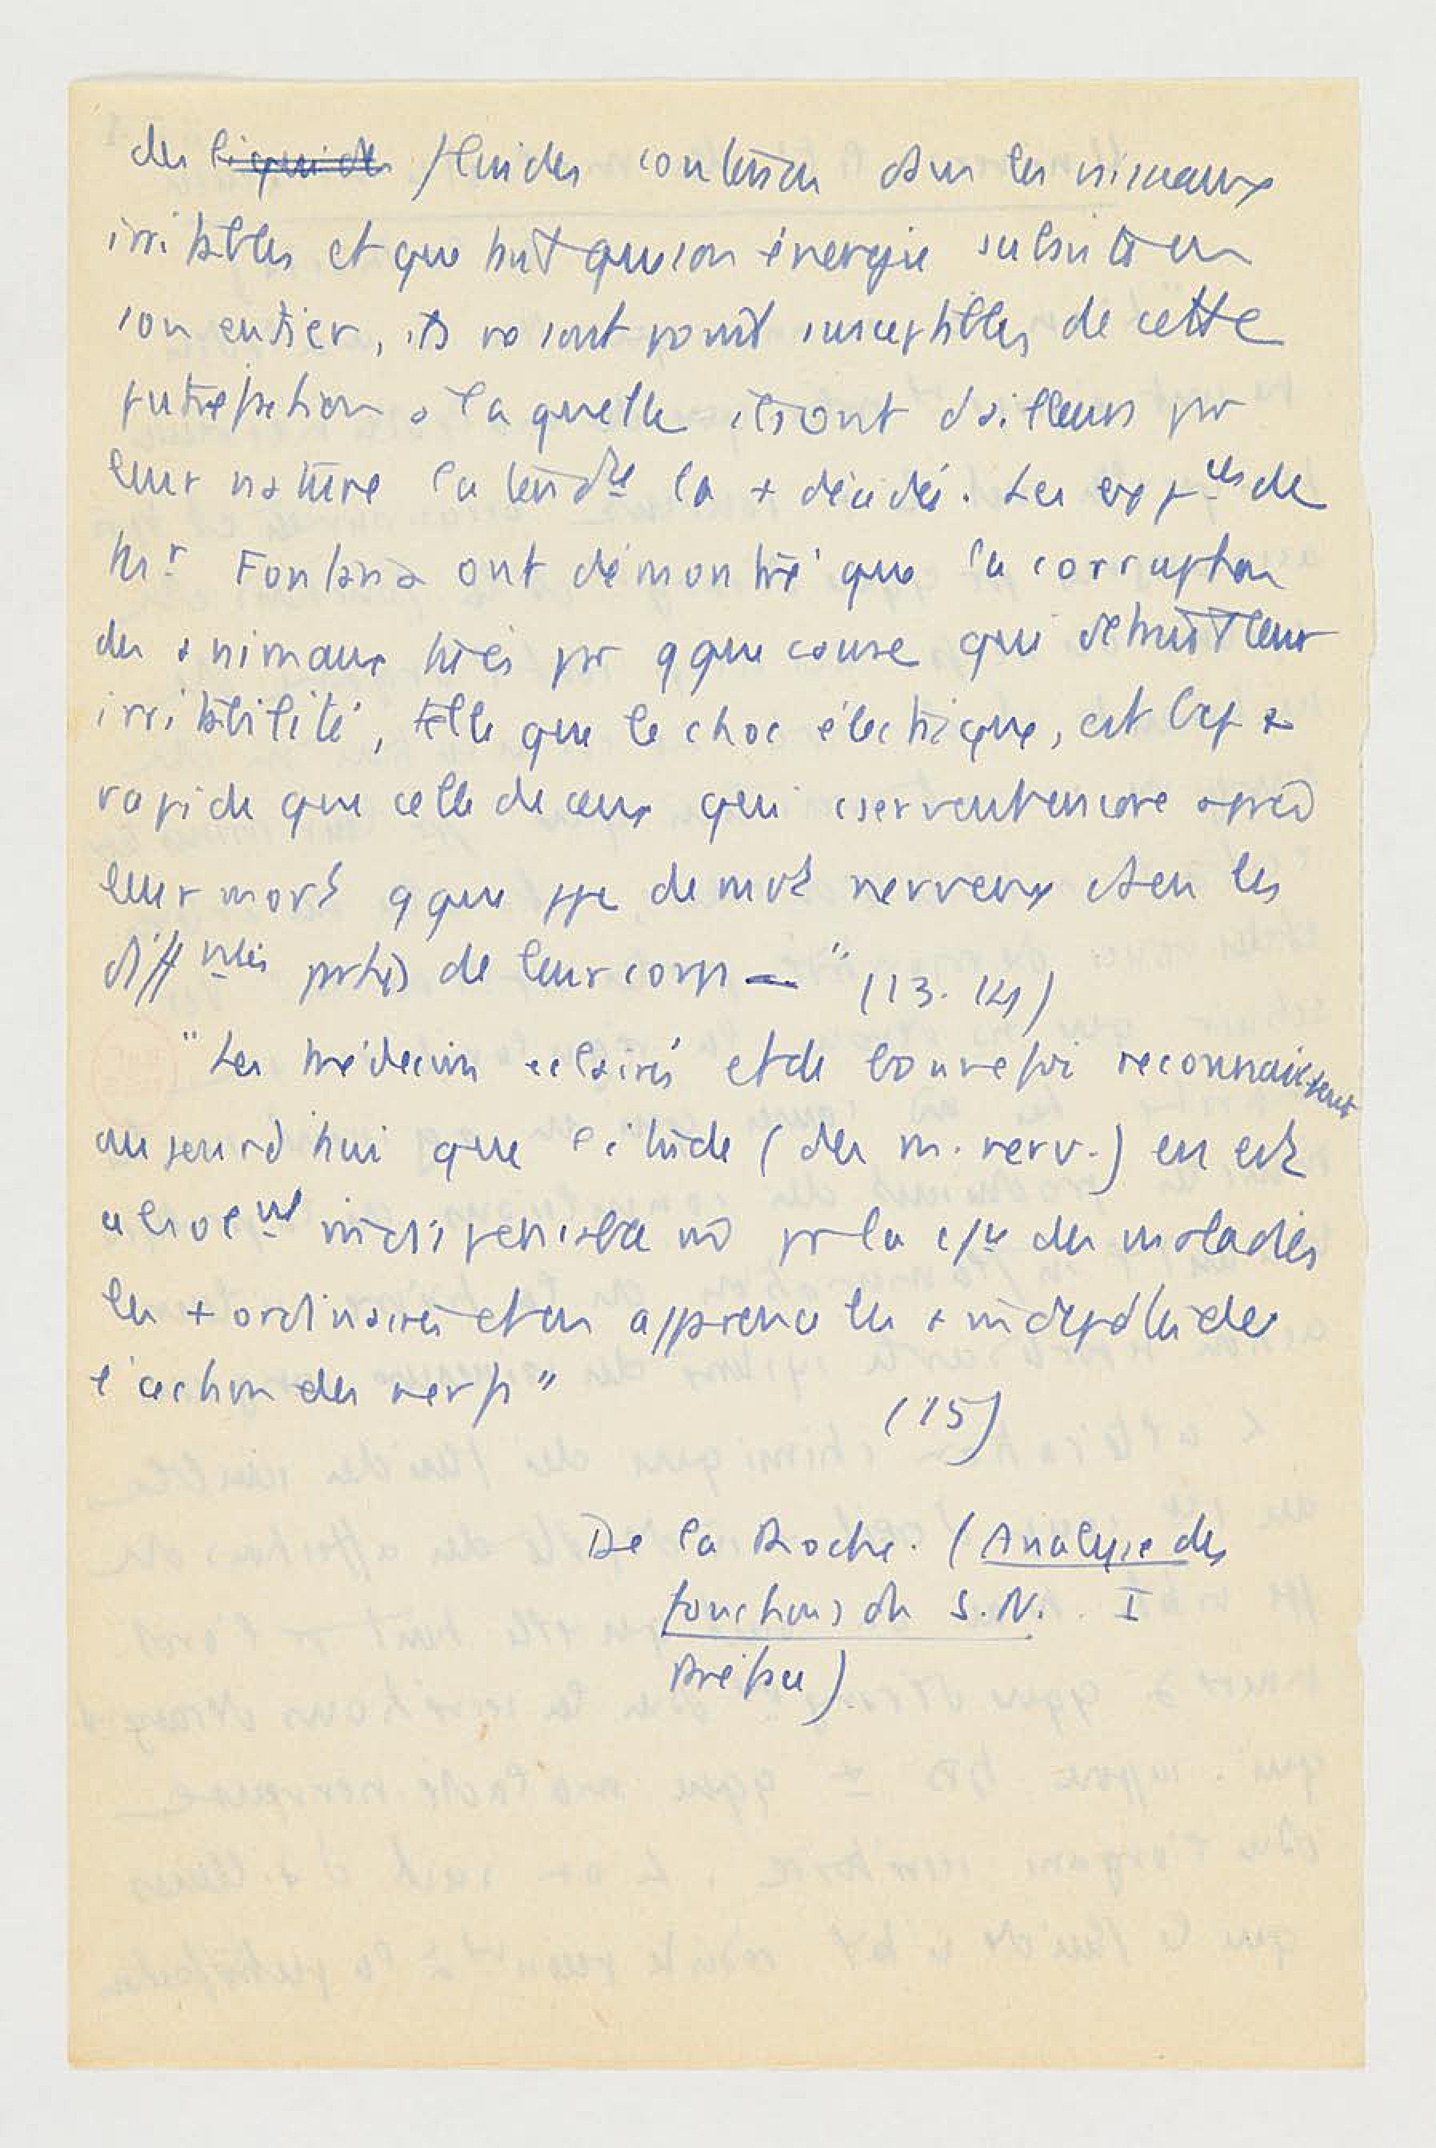 des liquides fluides contenus dans les animaux
irritables et que tant que son énergie subsiste en
son entier, ils ne sont point susceptibles de cette
putréfaction à laquelle ils ont d'ailleurs par
leur nature la tend^ce la + décidée. Les exp^ces de
M^r Fontana ont démontré que la corruption
des animaux tués par qque cause qui détruit leur
irritabilité, telle que le choc électrique, est bcp +
rapide que celle de ceux qui cservent encore après
leur mort qque ppe de mvt nerveux dans les
diff^ntes parties de leur corps — " (13. 14)
"Les médecins éclairés et de bonne foi reconnaissent
aujourd'hui que l'étude (des m. nerv.) en est
absol^nt indispensable no pr la c/^ce des maladies
les + ordinaires et en apparence les + indépdtes de
l'action des nerfs"
(15)
De la Roche. (Analyse des
fonctions du S.N. I
Préface).